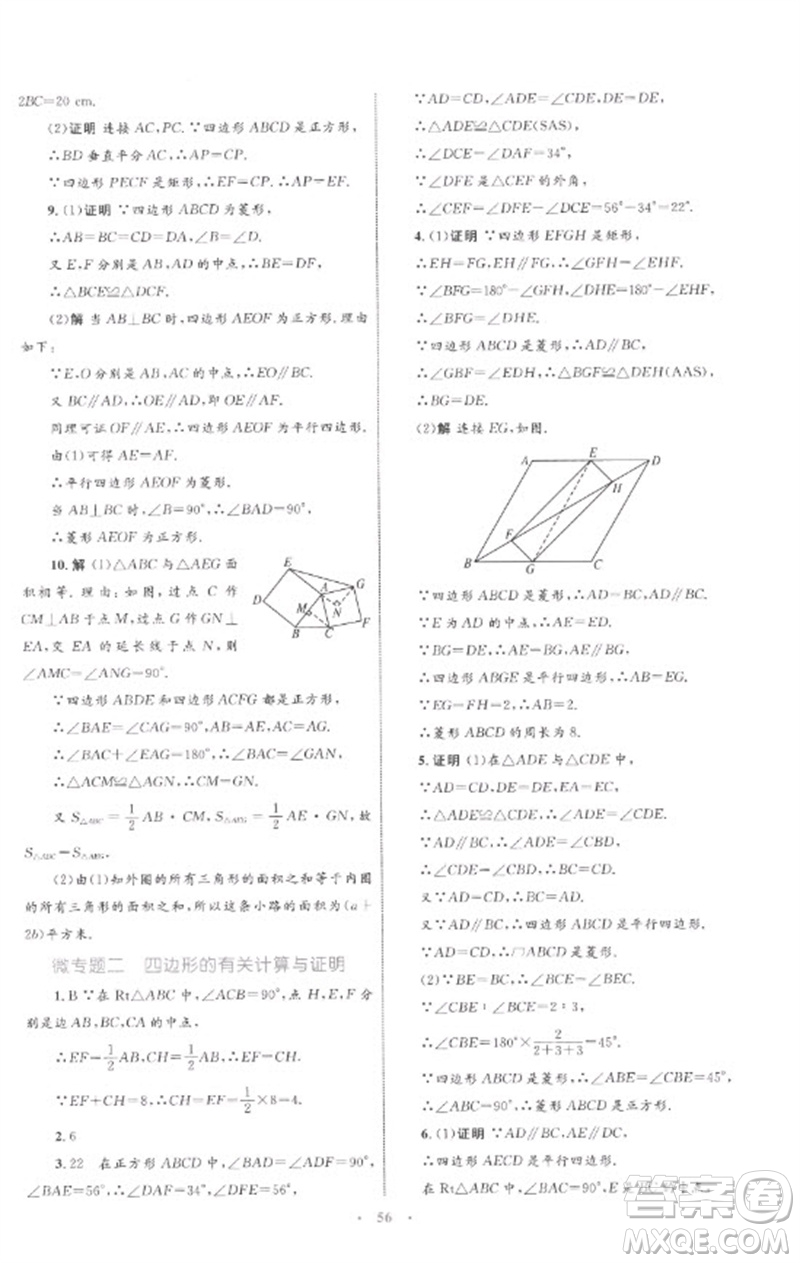 2BC=20 cm.
(2)证明 连接 AC,PC. ∵四边形 ABCD 是正方形,
∴BD 垂直平分 AC,∴AP=CP.
∵四边形 PECF 是矩形,∴EF=CP,∴AP=EF.
9. (1)证明 ∵四边形 ABCD 为菱形,
∴AB=BC=CD=DA,∠B=∠D.
又 E,F 分别是 AB,AD 的中点,∴BE=DF,
∴△BCE≌△DCF.
(2)解 当 AB⊥BC 时,四边形 AEOF 为正方形. 理由
如下:
∵E,O 分别是 AB,AC 的中点,∴EO∥BC.
又 BC∥AD,∴OE∥AD,即 OE∥AF.
同理可证 OF∥AE,∴四边形 AEOF 为平行四边形.
由(1)可得 AE=AF,
∴平行四边形 AEOF 为菱形.
当 AB⊥BC 时,∠B=90°,∠BAD=90°,
∴菱形 AEOF 为正方形.
10. 解 (1)△ABC 与△AEG 面
积相等. 理由:如图,过点 C 作
CM⊥AB 于点 M,过点 G 作 GN⊥
EA,交 EA 的延长线于点 N,则
∠AMC=∠ANG=90°.
E
A
G
D
M
N
B
C
F
∵四边形 ABDE 和四边形 ACFG 都是正方形,
∴∠BAE=∠CAG=90°,AB=AE,AC=AG.
∴∠BAC+∠EAG=180°,∴∠BAC=∠GAN,
∴△ACM≌△AGN,∴CM=GN.
又 S△ABC=1/2 AB·CM,S△AEG=1/2 AE·GN,故
S△ABC=S△AEG.
(2)由(1)知外圈的所有三角形的面积之和等于内圈
的所有三角形的面积之和,∴这条小路的面积为(a+
2b)平方米.
微专题二 四边形的有关计算与证明
1. B ∵在 Rt△ABC 中,∠ACB=90°,点 H,E,F 分
别是边 AB,BC,CA 的中点,
∴EF=1/2 AB,CH=1/2 AB,∴EF=CH.
∵EF+CH=8,∴CH=EF=1/2×8=4.
2. 6
3. 22 在正方形 ABCD 中,∠BAD=∠ADF=90°,
∠BAE=56°,∴∠DAF=34°,∠DFE=56°.
∵AD=CD,∠ADE=∠CDE,DE=DE,
∴△ADE≌△CDE(SAS),
∴∠DCE=∠DAF=34°,
∵∠DFE 是△CEF 的外角,
∴∠CEF=∠DFE-∠DCE=56°-34°=22°.
4. (1)证明 ∵四边形 EFGH 是矩形,
∴EH=FG,EH∥FG,∴∠GFH=∠EHF.
∵∠BFG=180°-∠GFH,∠DHE=180°-∠EHF,
∴∠BFG=∠DHE.
∵四边形 ABCD 是菱形,∴AD∥BC,
∴∠GBF=∠EDH,∴△BGF≌△DEH(AAS),
∴BG=DE.
(2)解 连接 EG,如图.
A
E
D
H
F
B
G
C
∵四边形 ABCD 是菱形,∴AD∥BC,AD=BC.
∵E 为 AD 的中点,∴AE=ED.
∵BG=DE,∴AE=BG,AE∥BG,
∴四边形 ABGE 是平行四边形,∴AB=EG.
∵EG=FH=2,∴AB=2.
∴菱形 ABCD 的周长为 8.
5. 证明 (1)在△ADE 与△CDE 中,
∵AD=CD,DE=DE,EA=EC,
∴△ADE≌△CDE,∴∠ADE=∠CDE.
∵AD∥BC,∴∠ADE=∠CBD,
∴∠CDE=∠CBD,∴BC=CD.
∵AD=CD,∴BC=AD.
又∵AD∥BC,∴四边形 ABCD 是平行四边形.
又∵AD=CD,∴四边形 ABCD 是菱形.
(2)∵BE=BC,∴∠BCE=∠BEC.
∵∠CBE∶∠BCE=2∶3,
∴∠CBE=180°×2/(2+3+3)=45°.
∵四边形 ABCD 是菱形,∴∠ABE=∠CBE=45°,
∴∠ABC=90°,∴菱形 ABCD 是正方形.
6. (1)证明 ∵AD∥BC,AE∥DC,
∴四边形 AECD 是平行四边形.
在 Rt△ABC 中,∠BAC=90°,E
· 56 ·
答案卷
MXQE.COM